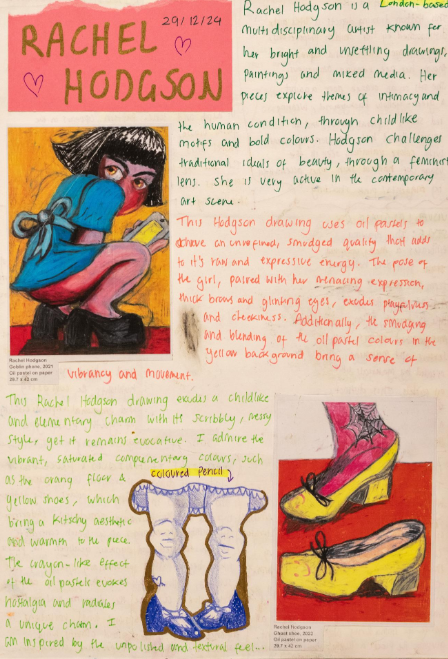 29/12/24
RACHEL
HODGSON
Rachel Hodgson is a London-based
multidisciplinary artist known for
her bright and unsettling drawings,
paintings and mixed media. Her
pieces explore themes of intimacy and
the human condition, through childlike
motifs and bold colours. Hodgson challenges
traditional ideals of beauty, through a feminist
lens. She is very active in the contemporary
art scene.
This Hodgson drawing uses oil pastels to
achieve an unrefined, smudged quality that adds
to it's raw and expressive energy. The pose of
the girl, paired with her menacing expression,
thick brows and glinting eyes, exudes playfulness
and cheekiness. Additionally, the smudging
and blending of the oil pastel colours in the
yellow background bring a sense of
vibrancy and movement.
Rachel Hodgson
Goblin phone, 2021
Oil pastel on paper
29.7 x 42 cm
This Rachel Hodgson drawing exudes a childlike
and elementary charm with its scribbly, messy
style, yet it remains evocative. I admire the
vibrant, saturated complementary colours, such
as the orang floor &
yellow shoes, which
bring a kitschy aesthetic
and warmth to the piece.
The crayon-like effect
of the oil pastels evokes
nostalgia and radiates
a unique charm. I
am inspired by the unpolished and textural feel...
coloured pencil
Rachel Hodgson
shoe, 2022
Oil pastel on paper
29.7 x 42 cm